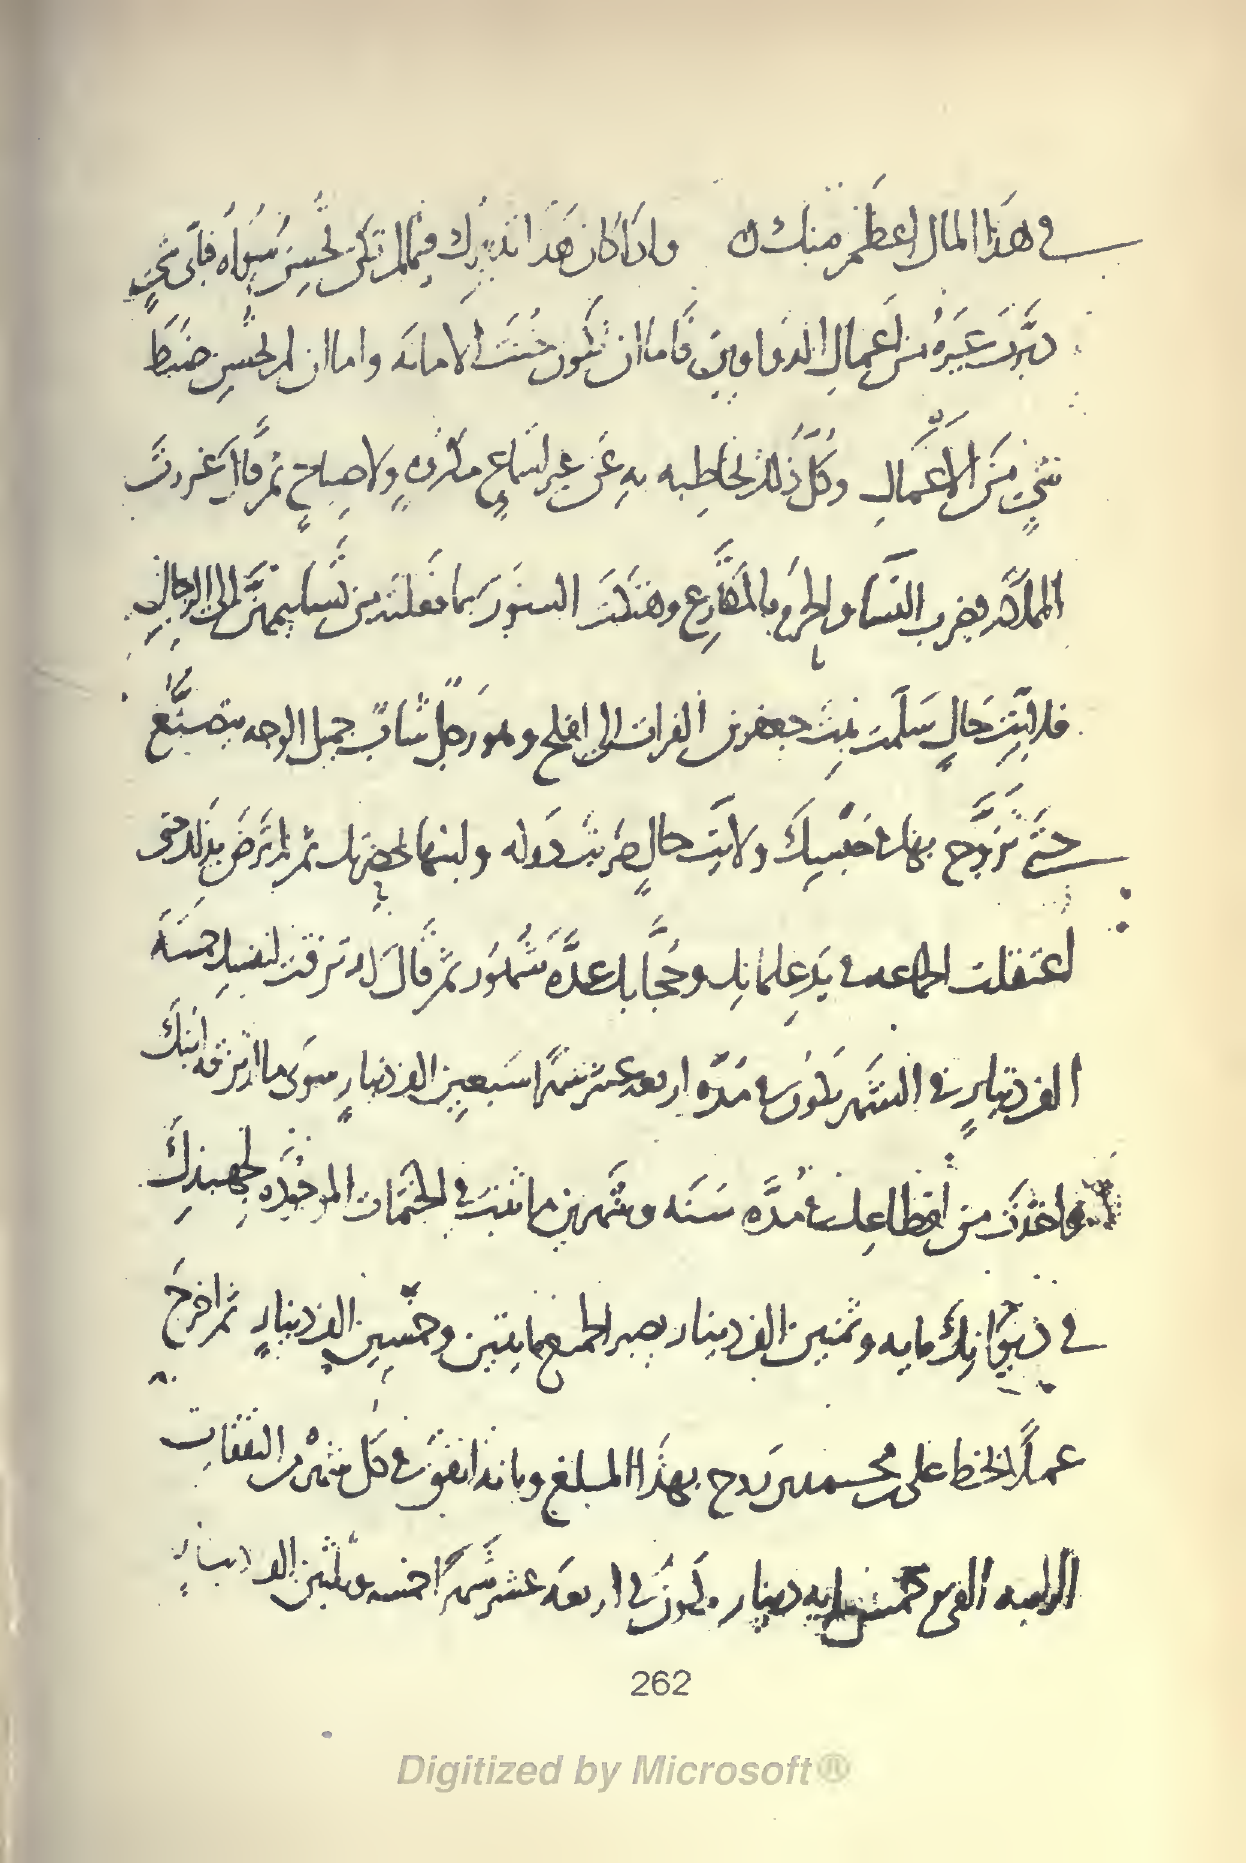 في هذا المال اعظم منك ن واذا كان هذا تدبيرك فيما لم تكن تحسن سواه فاي شي
دبرت غيره من اعمال الدواوين فاما ان تكون خنت الامانه واما ان لم تحسن ضبط
شي من الاعمال وكل ذلك يخاطبه به عن غير اسماع مكروه ولا صياح ثم قال غررت
المملكه وضرب النسا والحرم بالمقارع وهتكت الستور بما فعلته من تسليمهن الى الرجال
فلايت حال سلمت بنت جعفر بن الفرات الى افلح وهو رجل شاب جميل الوجه يتصنع
حتى تزوج بها في حبسك ولايت حال ضربت دوله وابنها بحضرتك ثم لم ترض بذلك حتى
اعتقلت الجماعه في يد غلمانك وحجابك عده شهور ثم قال له ارتزقت لنفسك خمسه
الف دينار في الشهر يكون في مده اربعه عشر شهرا سبعين الف دينار سوى ما ارتزقه ابنك
واخذت من اقطاعك في مده سنه وشهرين ما ثبت في الختمات الموجوده لجهبذك
في ديوانك مايه وثمنين الف دينار يصير الجميع مايتين وخمسين الف دينار ثم اخرج
عملا بخط علي بن محمد بن روح بهذا المبلغ وبانه انفق في كل شهر من النفقات
الراتبه الفي وخمس مايه دينار يكون في اربعه عشر شهرا خمسه وثلثين الف دينار
262
Digitized by Microsoft®